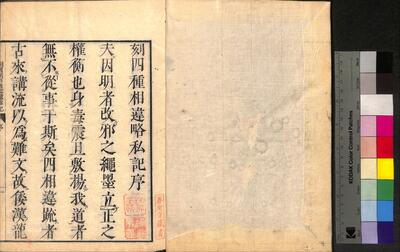 刻四種相違略私記序
夫因明者改邪之繩墨立正之
權衡也身毒震旦敷揚我道者
無不從事于斯矣四相違䟽者
古來講流以爲難文故僕漢龍
KODAK Color Control Patches